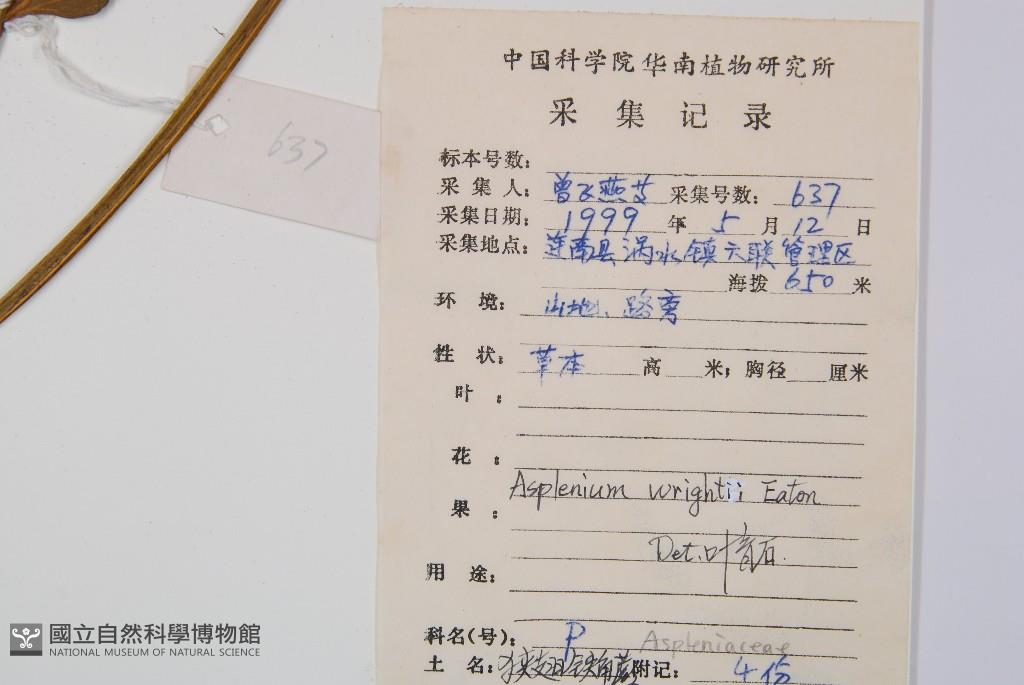 中国科学院华南植物研究所
采集记录
637
标本号数:
采集人: 曾飞燕等 采集号数: 637
采集日期: 1999 年 5 月 12 日
采集地点: 连南县涡水镇六联管理区
海拨 650 米
环境: 山地、路旁
性状: 草本 高 米; 胸径 厘米
叶:
花:
Asplenium wrightii Eaton
果:
Det. 叶育石.
用途:
科名(号): P Aspleniaceae
土名: 狭翅铁角蕨 附记: 4份
國立自然科學博物館
NATIONAL MUSEUM OF NATURAL SCIENCE